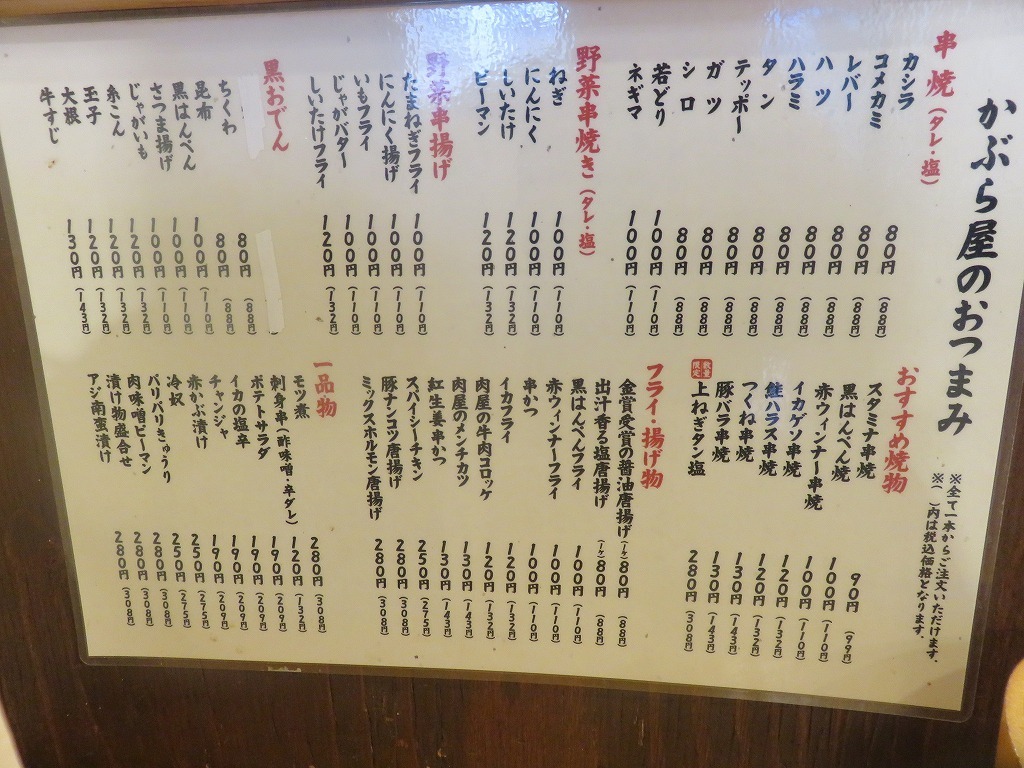 かぶら屋のおつまみ
※全て一本からご注文いただけます。
※( )内は税込価格となります。
串焼(タレ・塩)
カシラ 80円(88円)
コメカミ 80円(88円)
レバー 80円(88円)
ハツ 80円(88円)
ハラミ 80円(88円)
タン 80円(88円)
テッポー 80円(88円)
ガツ 80円(88円)
シロ 80円(88円)
若どり 100円(110円)
ネギマ 100円(110円)
野菜串焼き(タレ・塩)
ねぎ 100円(110円)
にんにく 100円(110円)
しいたけ 120円(132円)
ピーマン 120円(132円)
野菜串揚げ
たまねぎフライ 100円(110円)
にんにく揚げ 100円(110円)
いもフライ 100円(110円)
じゃがバター 100円(110円)
しいたけフライ 120円(132円)
黒おでん
ちくわ 80円(88円)
昆布 80円(88円)
黒はんぺん 100円(110円)
さつま揚げ 100円(110円)
じゃがいも 100円(110円)
糸こん 120円(132円)
玉子 120円(132円)
大根 120円(132円)
牛すじ 130円(143円)
おすすめ焼物
スタミナ串焼 90円(99円)
黒はんぺん焼 100円(110円)
赤ウィンナー串焼 100円(110円)
イカゲソ串焼 120円(132円)
鮭ハラス串焼 120円(132円)
つくね串焼 130円(143円)
豚バラ串焼 130円(143円)
数量限定 上ねぎタン塩 280円(308円)
フライ・揚げ物
金賞受賞の醤油唐揚げ(1ケ)80円(88円)
出汁香る塩唐揚げ(1ケ)80円(88円)
黒はんぺんフライ 100円(110円)
赤ウィンナーフライ 100円(110円)
串かつ 100円(110円)
イカフライ 120円(132円)
肉屋の牛肉コロッケ 120円(132円)
肉屋のメンチカツ 130円(143円)
紅生姜串かつ 130円(143円)
スパイシーチキン 250円(275円)
豚ナンコツ唐揚げ 280円(308円)
ミックスホルモン唐揚げ 280円(308円)
一品物
モツ煮 280円(308円)
刺身串(酢味噌・辛ダレ) 120円(132円)
ポテトサラダ 190円(209円)
イカの塩辛 190円(209円)
チャンジャ 190円(209円)
赤かぶ漬け 190円(209円)
冷奴 250円(275円)
パリパリきゅうり 250円(275円)
肉味噌ピーマン 280円(308円)
漬け物盛合せ 280円(308円)
アジ南蛮漬け 280円(308円)